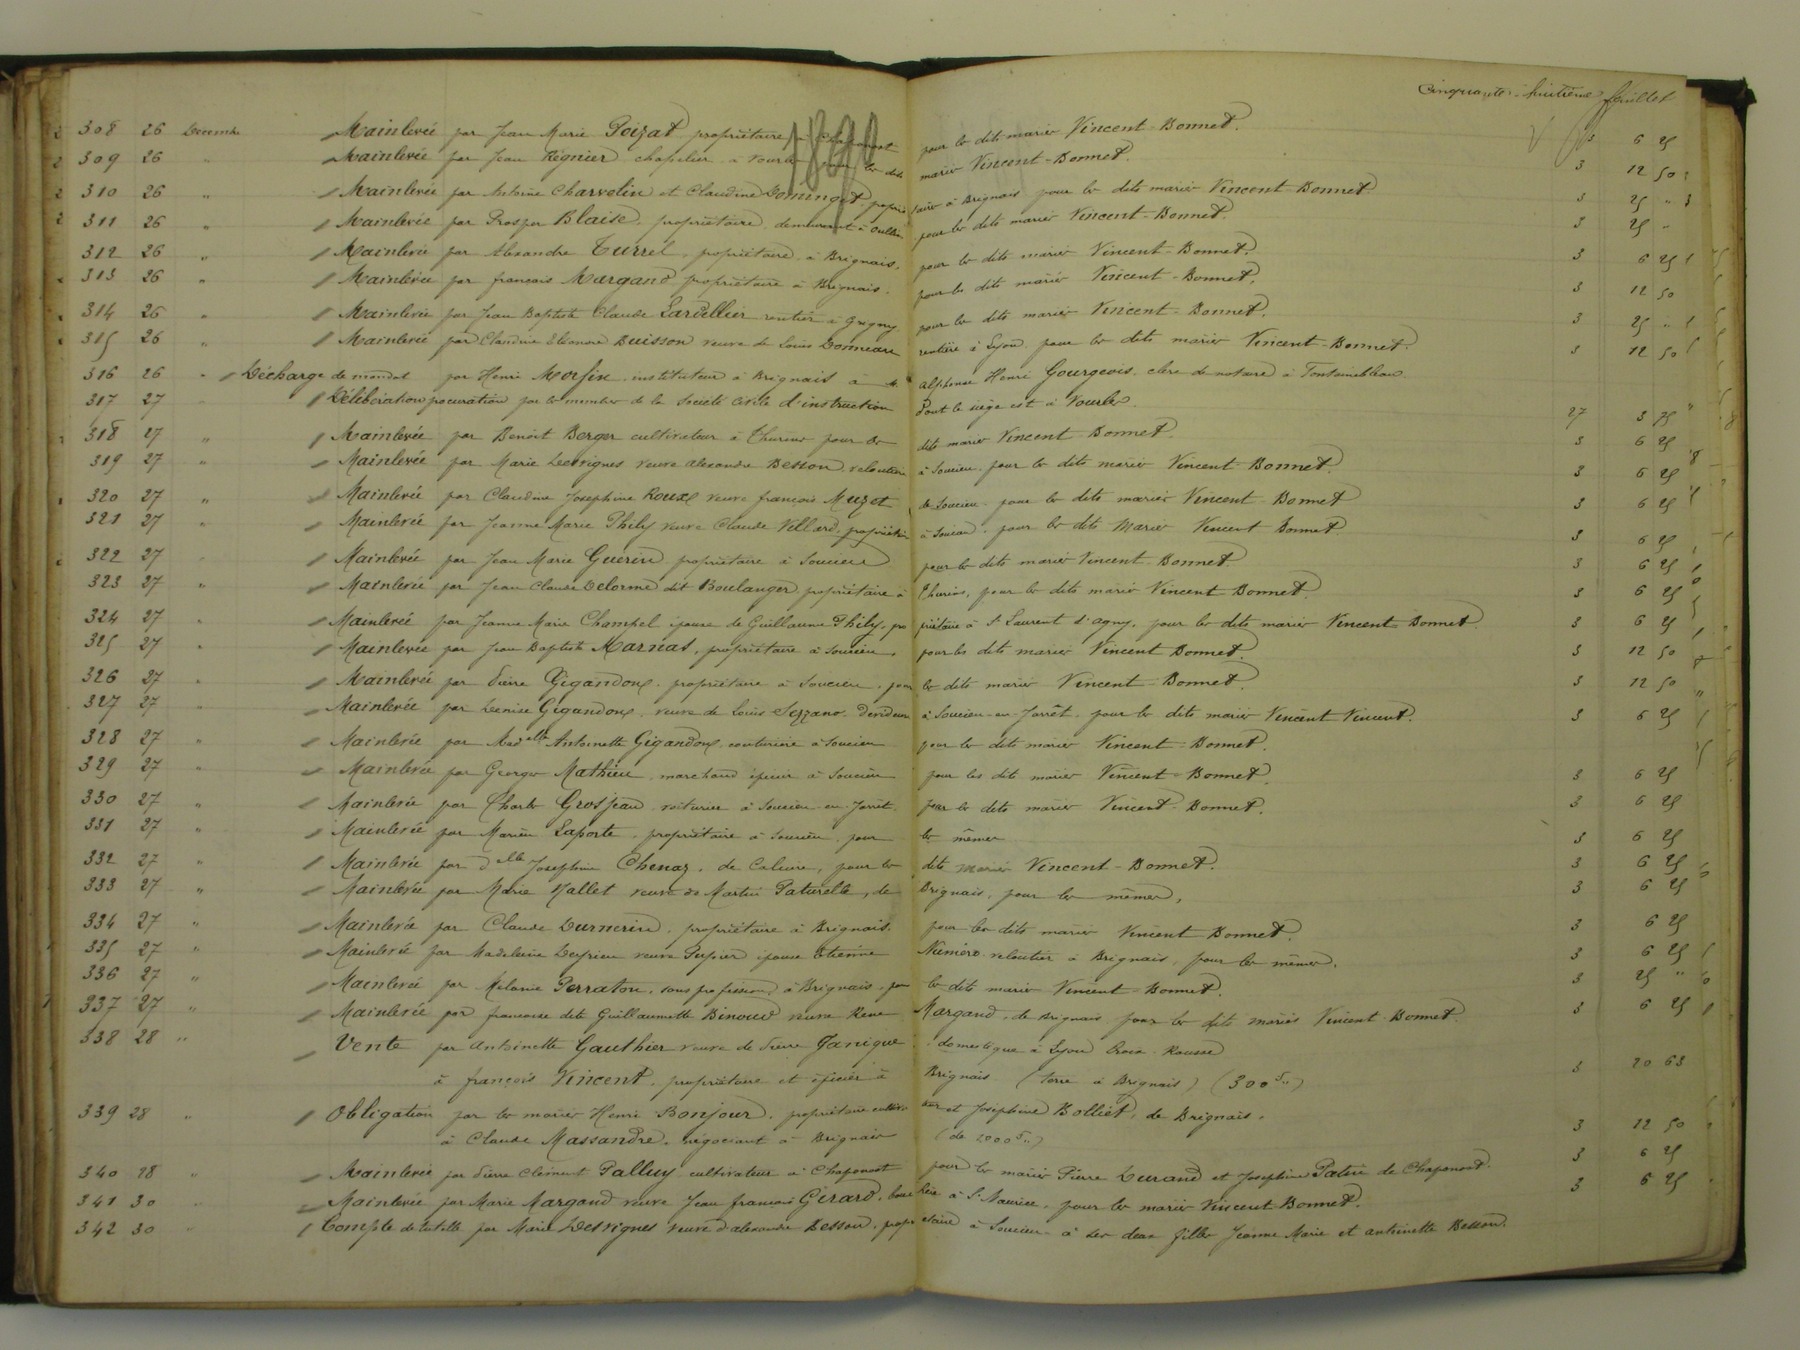 Cinquante-huitième feuillet
1890
308 26 Décembre Mainlevée par Jean Marie Poizat propriétaire à Chaponost pour les dits mariés Vincent-Bonnet. 3 6 25
309 26 " Mainlevée par Jean Régnier chapelier à Vourles pour les dits mariés Vincent-Bonnet. 3 12 50
310 26 " Mainlevée par Antoine Charvolin et Claudine Domingot, propriétaire à Brignais pour les dits mariés Vincent-Bonnet 3 25 "
311 26 " Mainlevée par Prosper Blaise, propriétaire, demeurant à Oullins pour les dits mariés Vincent-Bonnet. 3 25 "
312 26 " Mainlevée par Alexandre Turrel, propriétaire, à Brignais, pour les dits mariés Vincent-Bonnet. 3 6 25
313 26 " Mainlevée par françois Margand propriétaire à Brignais. pour les dits mariés Vincent-Bonnet, 3 12 50
314 26 " Mainlevée par Jean Baptiste Claude Lardellier rentier à Grigny pour les dits mariés Vincent-Bonnet. 3 25 "
315 26 " Mainlevée par Claudine Eléonore Buisson veuve de Louis Donneaux rentière à Lyon pour les dits mariés Vincent-Bonnet. 3 12 50
316 26 " Décharge de mandat par Henri Morfin instituteur à Brignais à M. Alphonse Henri Gourgeois, clerc de notaire à Fontainebleau
317 27 Délibération procuration par les membres de la Société Civile d'instruction dont le siège est à Vourles. 27 3 75
318 27 " Mainlevée par Benoit Berger cultivateur à Thurins pour les dits mariés Vincent-Bonnet. 3 6 25
319 27 " Mainlevée par Marie Desvignes veuve Alexandre Besson, veloutière à Soucieu, pour les dits mariés Vincent-Bonnet. 3 6 25
320 27 " Mainlevée par Claudine Josephine Roux veuve françois Muzet de Soucieu, pour les dits mariés Vincent-Bonnet 3 6 25
321 27 " Mainlevée par Jeanne Marie Phily veuve Claude Villard, propriétaire à Soucieu, pour les dits Mariés Vincent Bonnet 3 6 25
322 27 Mainlevée par Jean Marie Guérin propriétaire à Soucieu pour les dits mariés Vincent Bonnet 3 6 25
323 27 " Mainlevée par Jean Claude Delorme dit Boulanger, propriétaire à Thurins, pour les dits mariés Vincent Bonnet. 3 6 25
324 27 " Mainlevée par Jeanne Marie Champel épouse de Guillaume Phily, propriétaire à St Laurent d'agny, pour les dits mariés Vincent-Bonnet. 3 6 25
325 27 " Mainlevée par Jean Baptiste Marnas, propriétaire à Soucieu, pour les dits mariés Vincent Bonnet. 3 12 50
326 27 " Mainlevée par Pierre Gigandoux, propriétaire à Soucieu, pour les dits mariés Vincent-Bonnet. 3 12 50
327 27 " Mainlevée par Denise Gigandoux, veuve de Louis Sezzano, devideuse à Soucieu-en-Jarrêt, pour les dits mariés Vincent Vincent. 3 6 25
328 27 " Mainlevée par Madelle Antoinette Gigandoux, couturière à Soucieu pour les dits mariés Vincent-Bonnet.
329 27 " Mainlevée par Georges Mathieu, marchand épicier à Soucieu pour les dits mariés Vincent-Bonnet. 3 6 25
330 27 " Mainlevée par Charles Grosjean, voiturier à Soucieu-en-Jarrêt, pour les dits mariés Vincent-Bonnet. 3 6 25
331 27 " Mainlevée par Marien Laporte, propriétaire à Soucieu, pour les mêmes 3 6 25
332 27 " Mainlevée par delle Josephine Chenaz, de Caluire, pour les dits Mariés Vincent-Bonnet. 3 6 25
333 27 " Mainlevée par Marie Mallet veuve de Martin Paturelle, de Brignais, pour les mêmes, 3 6 25
334 27 " Mainlevée par Claude Durnerin, propriétaire à Brignais, pour les dits mariés Vincent Bonnet. 3 6 25
335 27 " Mainlevée par Madeleine Deyrieu veuve Pupier épouse Etienne Numéro, veloutier à Brignais, pour les mêmes. 3 6 25
336 27 " Mainlevée par Mélanie Perraton, sans profession, à Brignais, pour les dits mariés Vincent-Bonnet. 3 25 "
337 27 " Mainlevée par françoise dite Guillaumette Binoud veuve René Margand, de Brignais pour les dits mariés Vincent-Bonnet. 3 6 25
338 28 " Vente par Antoinette Gauthier veuve de Pierre Janique, domestique à Lyon Croix-Rousse
à françois Vincent, propriétaire et épicier à Brignais (terre à Brignais) (300 f.") 3 20 63
339 28 " Obligation par les mariés Henri Bonjour, propriétaire cultivateur et Joséphine Bolliet, de Brignais.
à Claude Massandre, négociant à Brignais (de 2000 f.") 3 12 50
340 28 " Mainlevée par Pierre Clément Palluy cultivateur à Chaponost pour les mariés Pierre Durand et Josephine Patin de Chaponost. 3 6 25
341 30 Mainlevée par Marie Margand veuve Jean françois Gérard, bouchère à St Maurice, pour les mariés Vincent Bonnet. 3 6 25
342 30 Compte de tutelle par Marie Desvignes veuve d'alexandre Besson, propriétaire à Soucieu à ses deux filles Jeanne Marie et antoinette Besson.